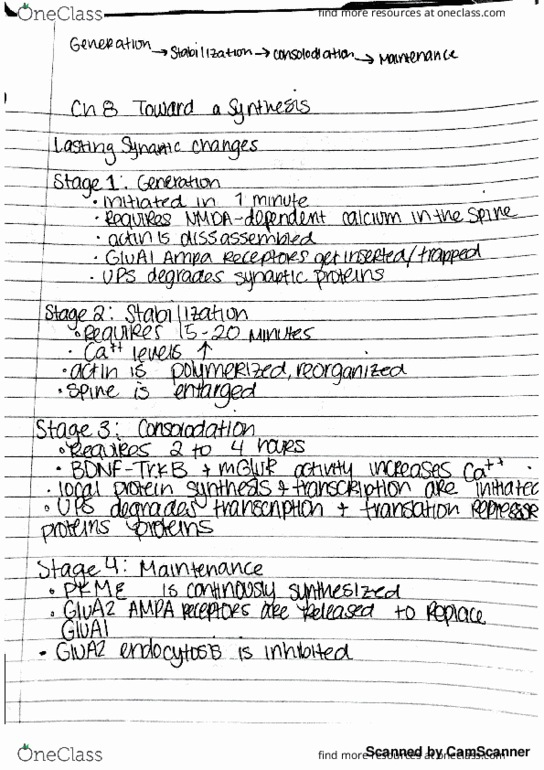 OneClass
find more resources at oneclass.com
Generation → Stabilization → consolodation → Maintenance
Ch 8 Toward a Synthesis
Lasting Synamic changes
Stage 1: Generation
• initiated in 1 minute
• Requires NMDA-dependent calcium in the spine
• actin is dissassembled
• GluA1 Ampa Receptors get inserted/trapped
• UPS degrades synaptic proteins
Stage 2: Stabilization
• Requires 15-20 minutes
• Ca++ levels ↑
• actin is polymerized, reorganized
• Spine is enlarged
Stage 3: Consolodation
• Requires 2 to 4 hours
• BDNF-TrkB + mGluR activity increases Ca++
• local protein synthesis + transcription are initiated
• UPS degrades transcription + translation Represse
proteins proteins
Stage 4: Maintenance
• PKMζ is continously synthesized
• GluA2 AMPA receptors are released to replace
GluA1
• GluA2 endocytosis is inhibited
OneClass
find more resources at oneclass.com
Scanned by CamScanner